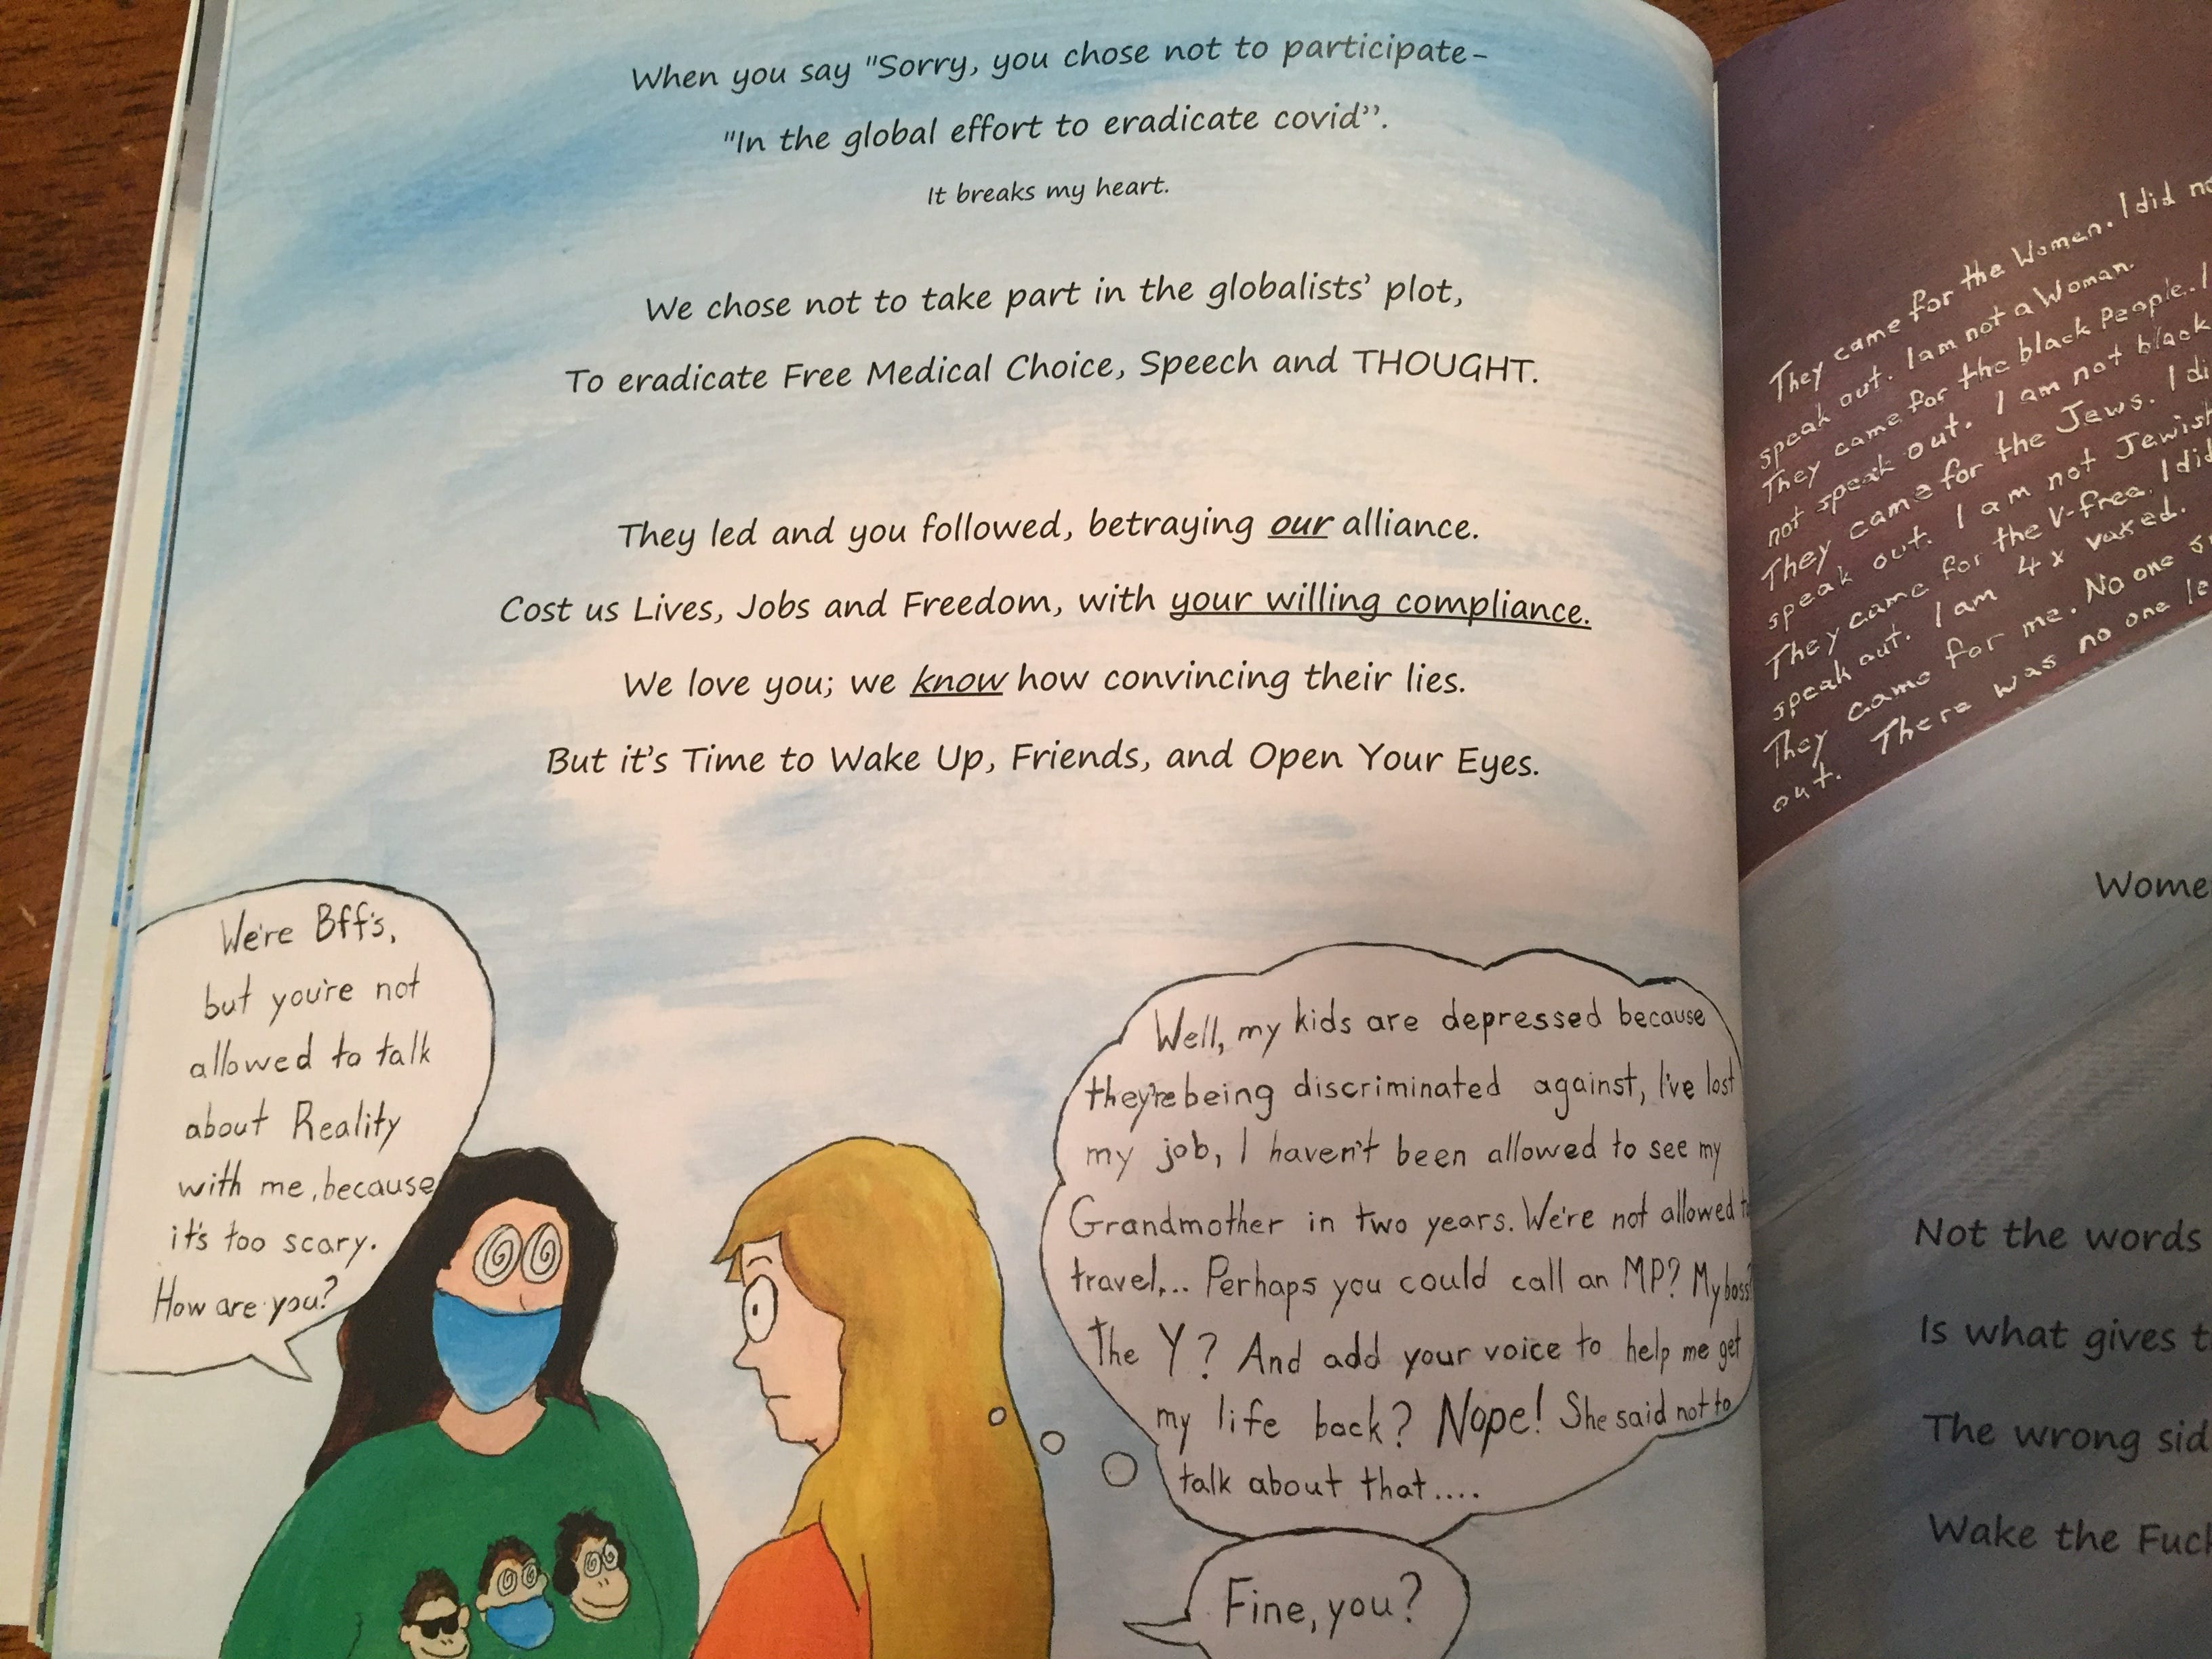 When you say "Sorry, you chose not to participate-
"In the global effort to eradicate covid”.
It breaks my heart.
We chose not to take part in the globalists’ plot,
To eradicate Free Medical Choice, Speech and THOUGHT.
They led and you followed, betraying our alliance.
Cost us Lives, Jobs and Freedom, with your willing compliance.
We love you; we know how convincing their lies.
But it’s Time to Wake Up, Friends, and Open Your Eyes.
We're Bff's,
but you're not
allowed to talk
about Reality
with me, because
it's too scary.
How are you?
Well, my kids are depressed because
they're being discriminated against, I've lost
my job, I haven't been allowed to see my
Grandmother in two years. We're not allowed
travel,.. Perhaps you could call an MP? My boss?
The Y? And add your voice to help me get
my life back? Nope! She said not to
talk about that....
Fine, you?
They came for the Women. I did
speak out. I am not a Woman.
They came for the black People. I
not speak out. I am not black
They came for the Jews. I
speak out. I am not Jewish
They came for the V-free. I did
speak out. I am 4x vaxed.
They came for me. No one
out. There was no one
Not the words
Is what gives
The wrong
Wake the